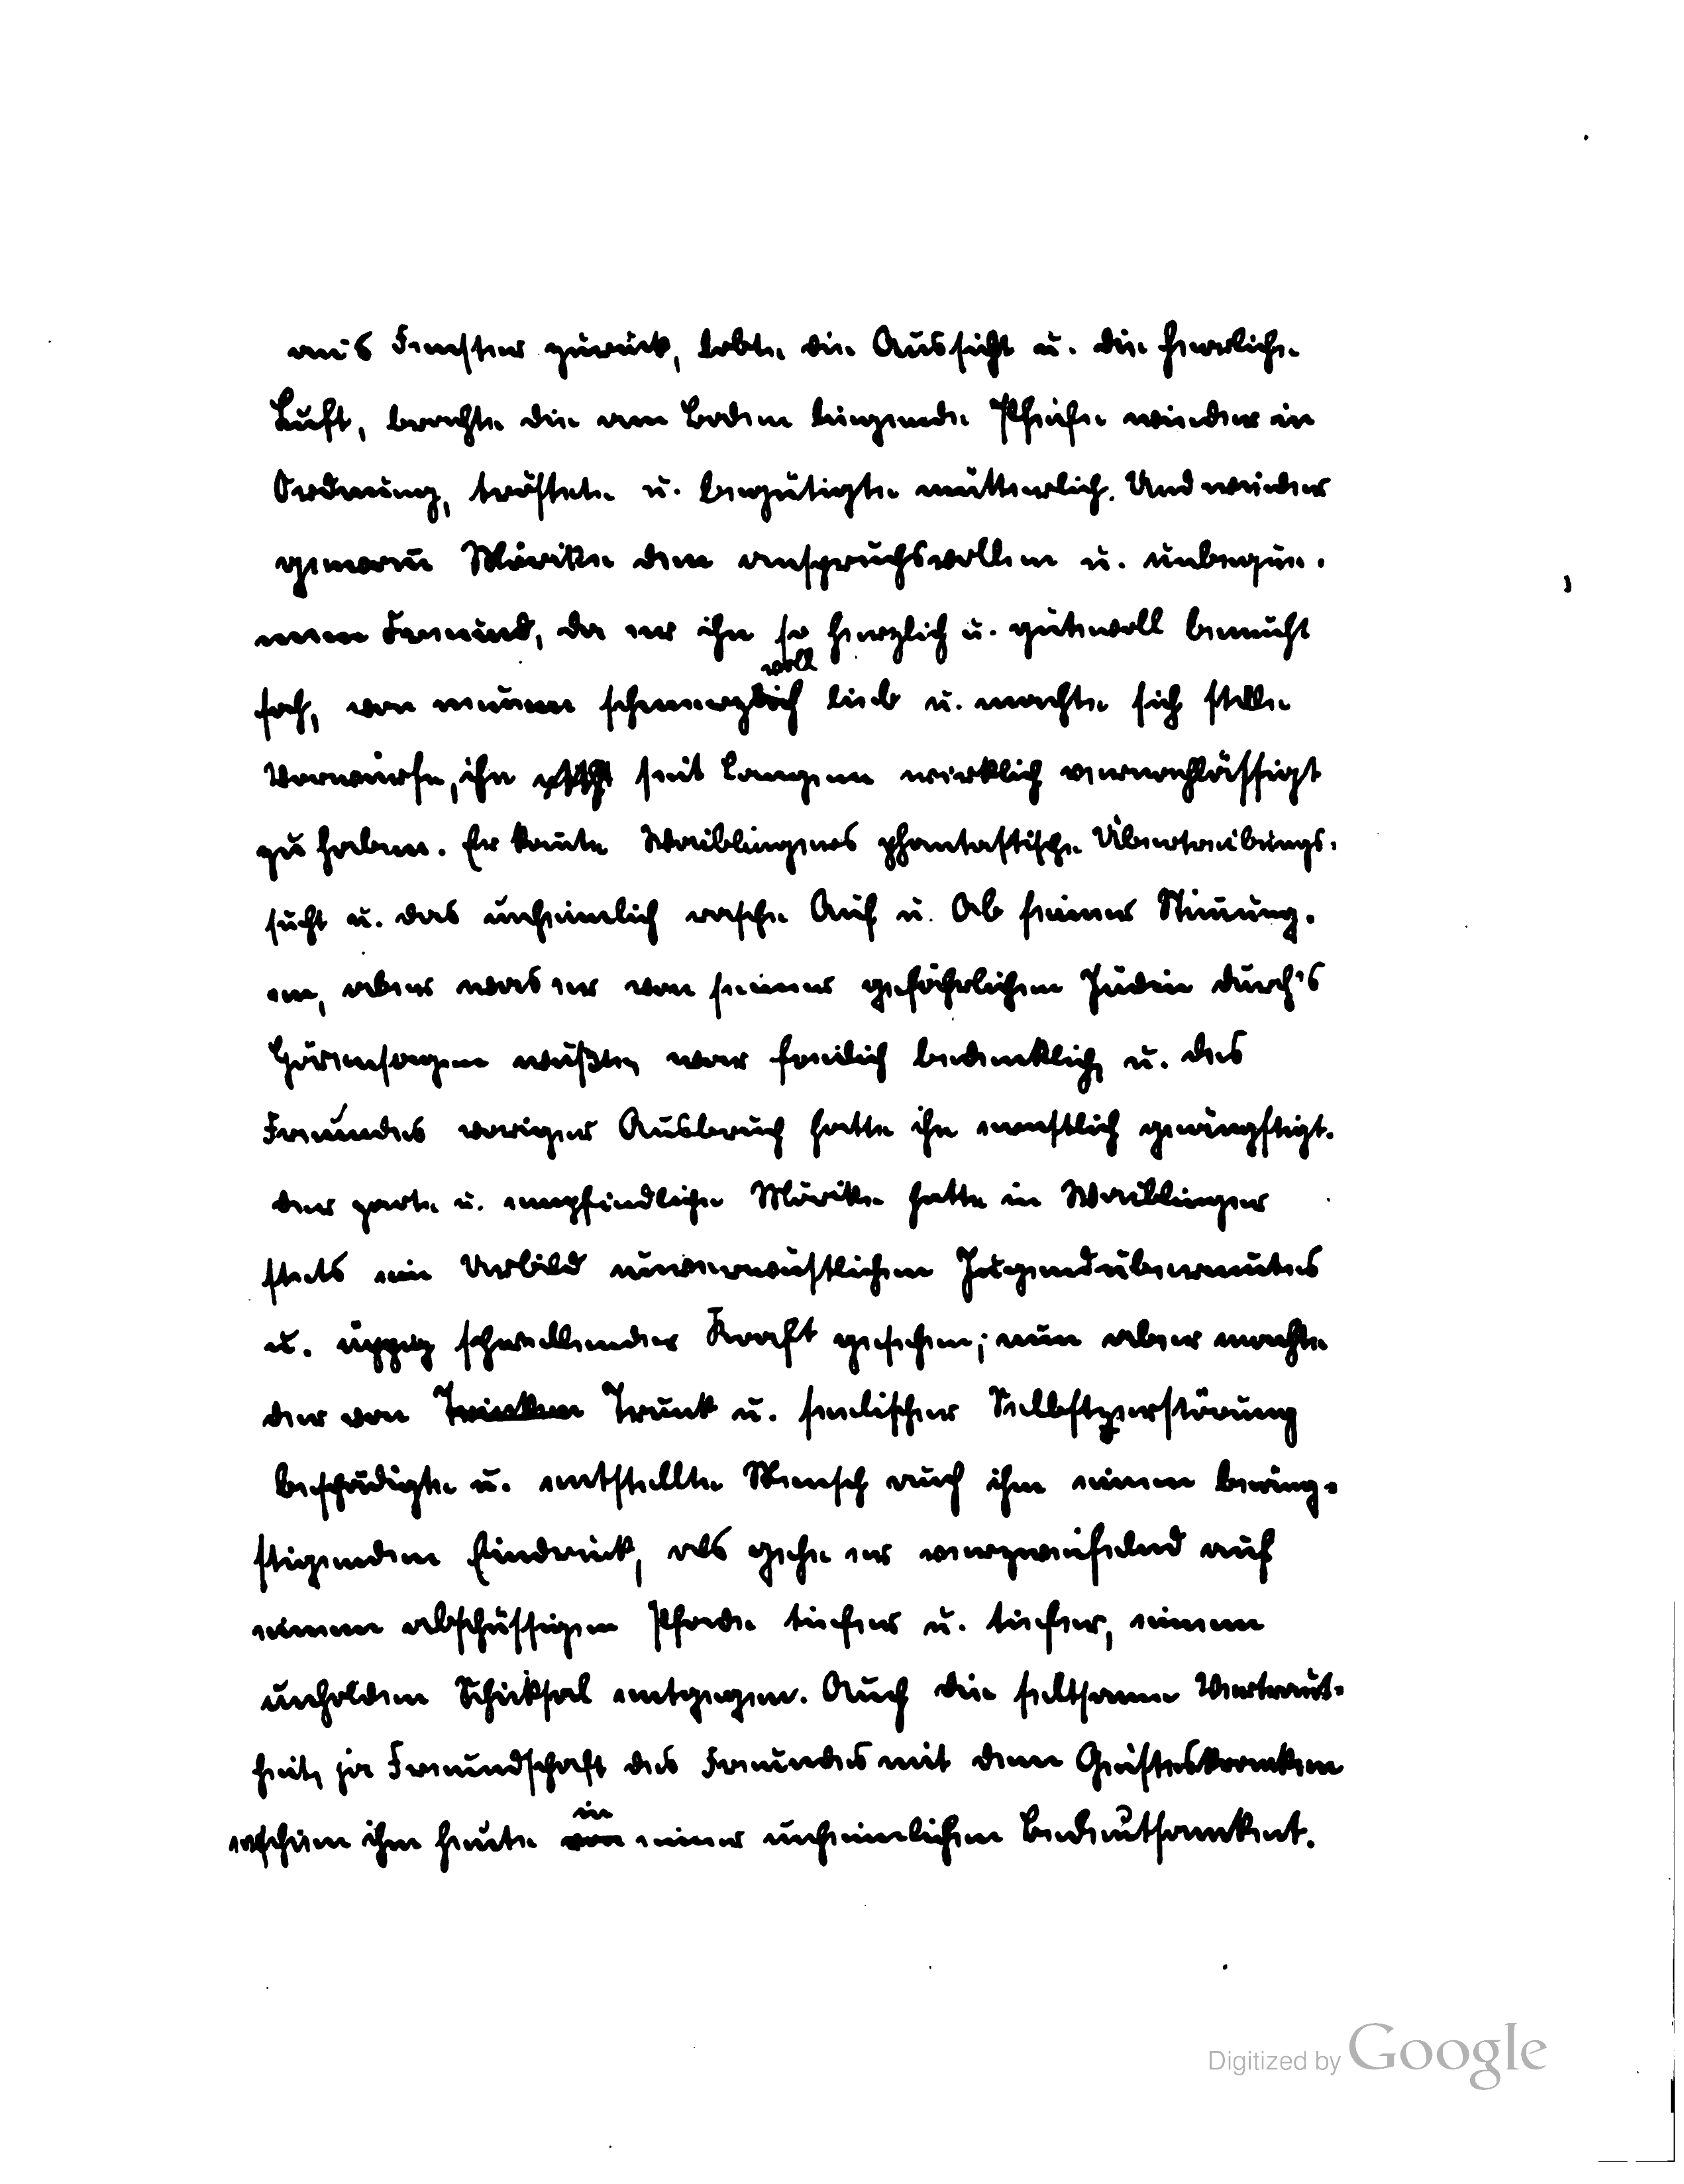 ans Fenster zurück, lobte die Aussicht u. die herrliche
Luft, brachte die am Boden liegende Pfeife wieder in
Ordnung, tröstete u. begütigte mütterlich. Und wieder
gewann Mörike den anspruchsvollen u. unbeque-
men Freund, da er ihn so herzlich u. gütevoll bemüht
voll
sah, von neuem schmerzlich lieb u. machte sich stille
Vorwürfe, ihn seit Langem wirklich vernachlässigt
zu haben. Er kannte Waiblingers phantastische Übertreibungs-
sucht u. das unheimlich rasche Auf u. Ab seiner Stimmung-
en, aber was er von seiner gefährlichen Jüdin durch's
Hörensagen wußte, war freilich bedenklich, u. des
Freundes voriger Ausbruch hatte ihn ernstlich geängstigt.
Der zarte u. empfindliche Mörike hatte in Waiblinger
stets ein Urbild unverwüstlichen Jugendübermutes
u. üppig schwellender Kraft gesehen; nun aber machte
der von Trinken Trunk u. seelischer Selbstzerstörung
beschädigte u. entstellte Mensch auch ihm einen beäng-
stigenden Eindruck, als gehe er verzweifelnd auf
einem abschüssigen Pfade tiefer u. tiefer, einem
unholden Schicksal entgegen. Auch die seltsame Vertraut-
heit, ja Freundschaft des Freundes mit dem Geisteskranken
in
erschien ihm heute von einer unheimlichen Bedeutsamkeit.
Digitized by Google